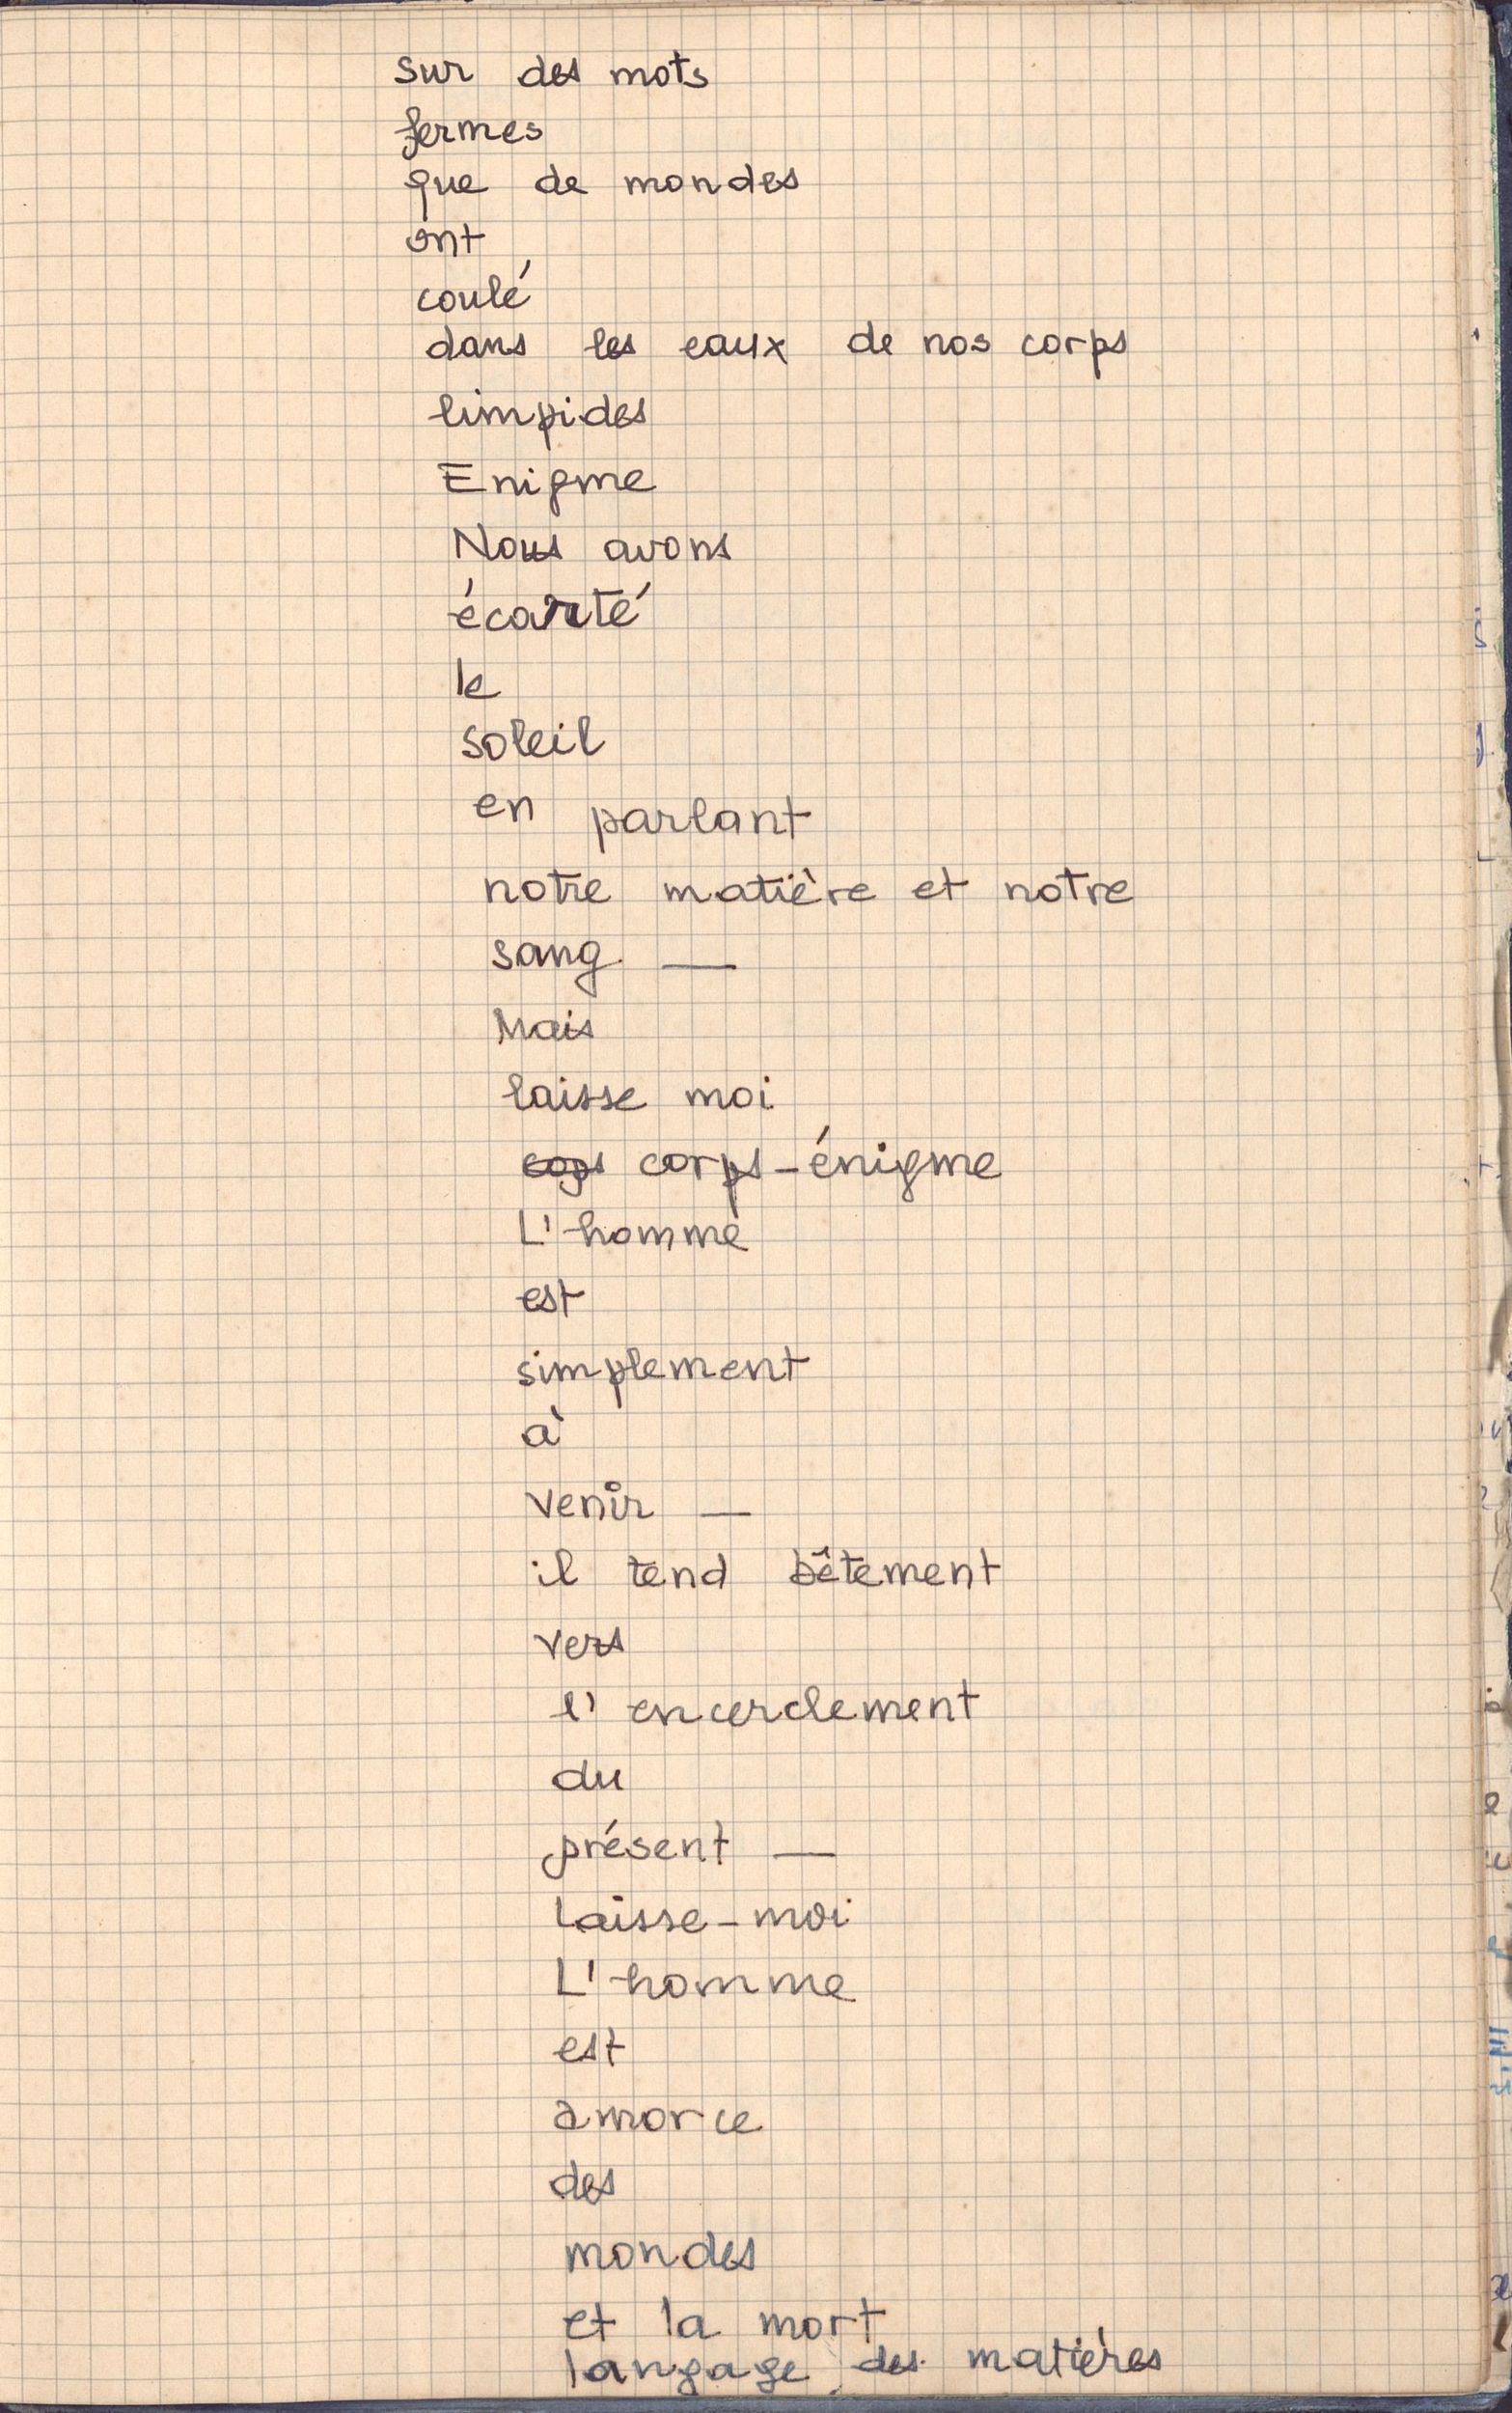 sur des mots
fermes
que de mondes
ont
coulé
dans les eaux de nos corps
limpides
Enigme
Nous avons
écarté
le
soleil
en parlant
notre matière et notre
sang —
Mais
laisse moi
corps-énigme
L'homme
est
simplement
à
venir —
il tend bêtement
vers
l'encerclement
du
présent —
Laisse-moi
L'homme
est
amorce
des
mondes
et la mort
langage des matières